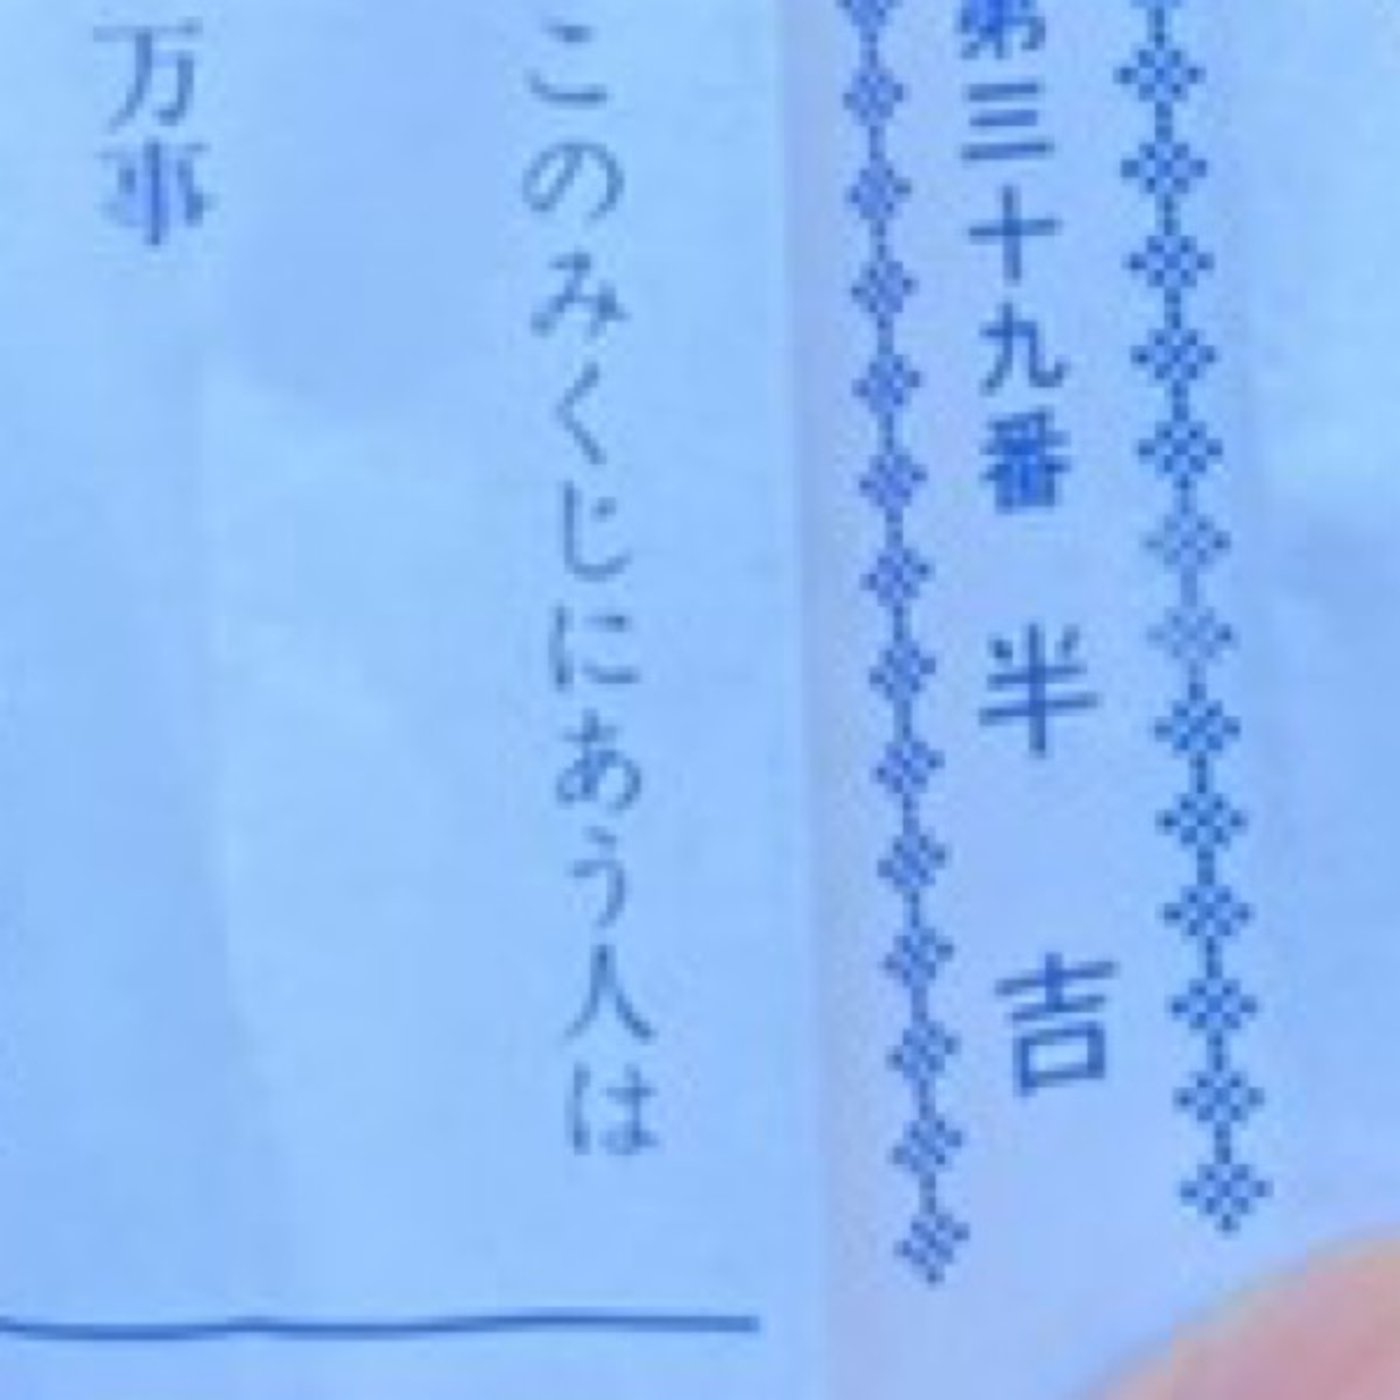 第三十九番 半 吉
このみくじにあう人は
万事